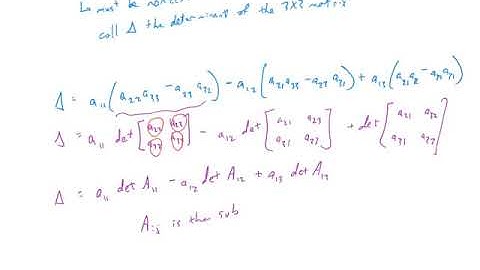 must be nonzero
call Δ the determinant of the 3x3 matrix
Δ = a₁₁(a₂₂a₃₃ - a₂₃a₃₂) - a₁₂(a₂₁a₃₃ - a₂₃a₃₁) + a₁₃(a₂₁a₃₂ - a₂₂a₃₁)
Δ = a₁₁ det[a₂₂ a₂₃ a₃₂ a₃₃] - a₁₂ det[a₂₁ a₂₃ a₃₁ a₃₃] + det[a₂₁ a₂₂ a₃₁ a₃₂]
Δ = a₁₁ det A₁₁ - a₁₂ det A₁₂ + a₁₃ det A₁₃
Aᵢⱼ is the sub